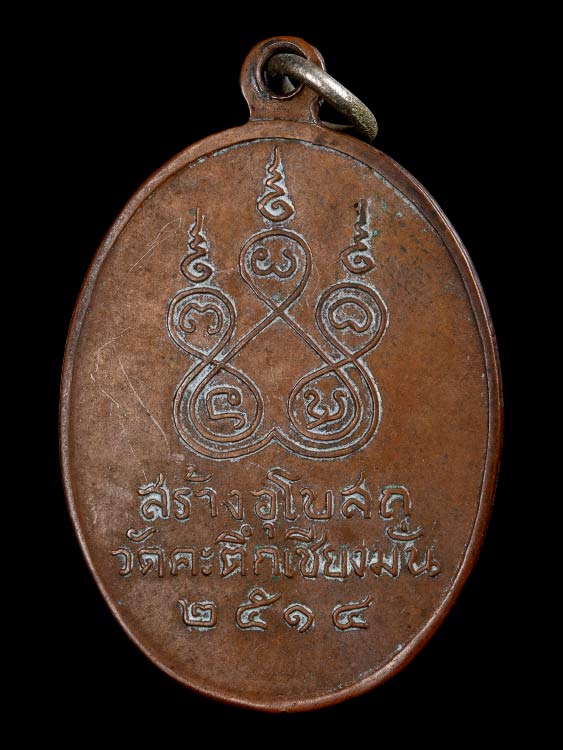 สร้างอุโบสถ
วัดคะตึกเชียงมั่น
๒๕๑๔